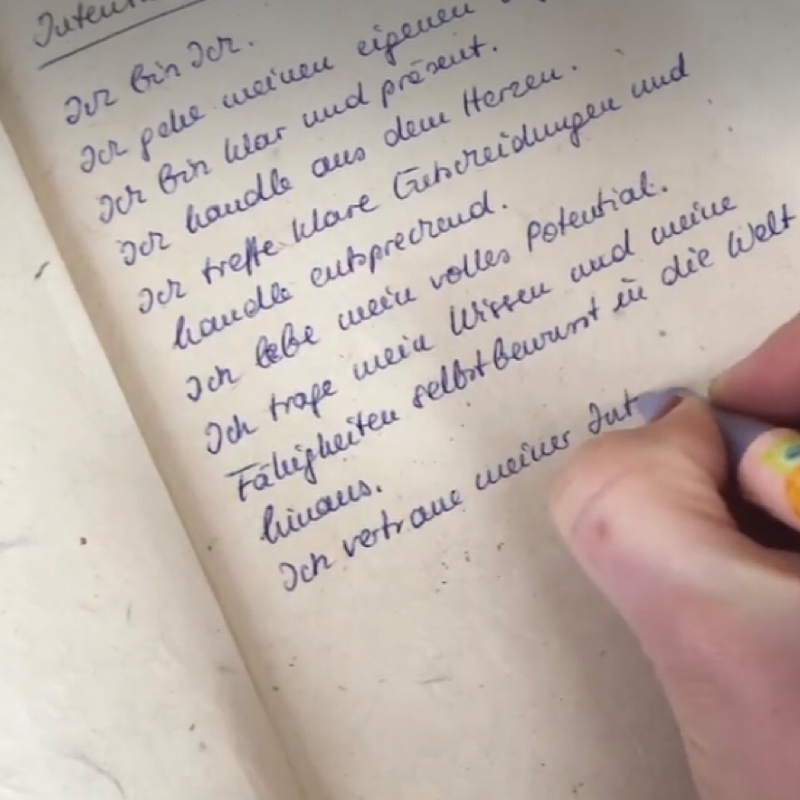 Ich bin Ich.
Ich gehe meinen eigenen
Ich bin klar und präsent.
Ich handle aus dem Herzen.
Ich treffe klare Entscheidungen und
handle entsprechend.
Ich lebe mein volles Potential.
Ich trage mein Wissen und meine
Fähigkeiten selbstbewusst in die Welt
hinaus.
Ich vertraue meiner Int